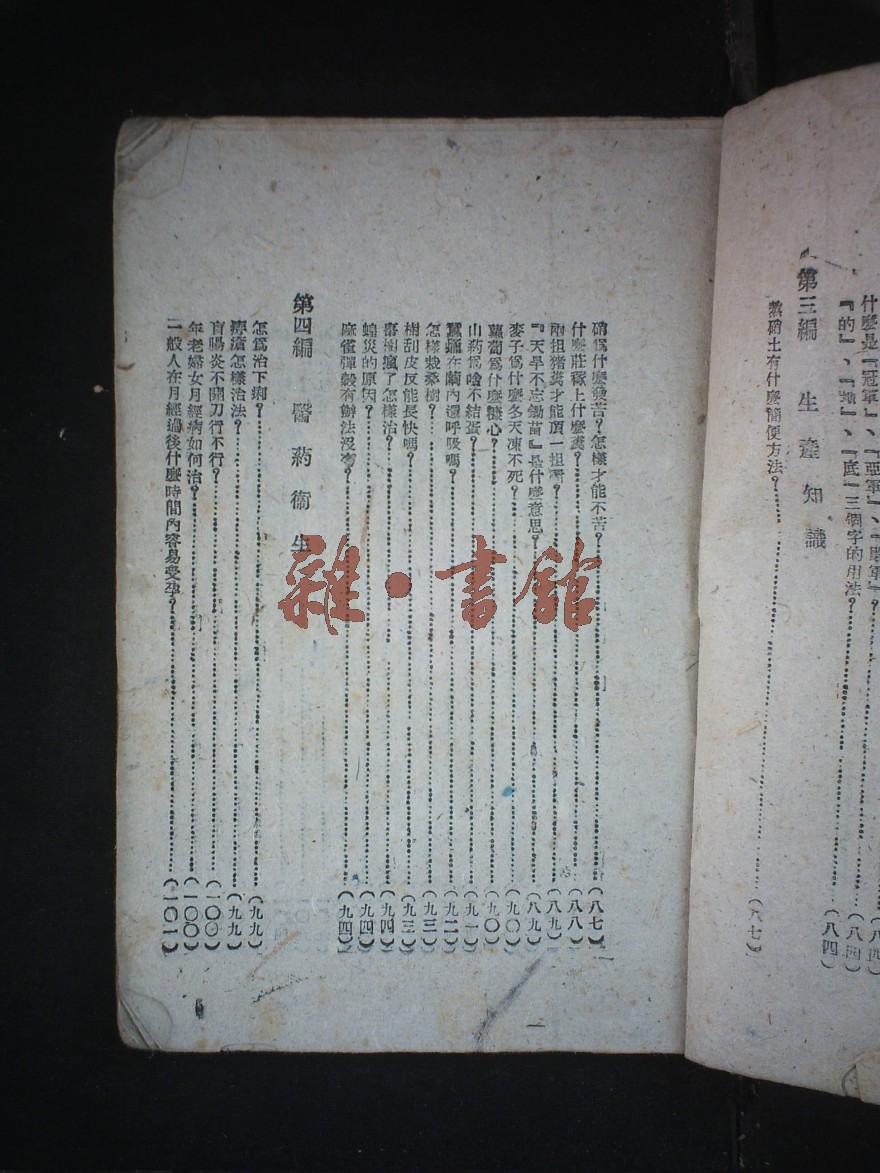 什麼是『冠軍』、『亞軍』、『殿軍』？……（八四）
『的』、『地』、『底』三個字的用法？……（八四）
（八四）
第三編　生產知識
熬硝土有什麼簡便方法？……（八七）
硝爲什麼發苦？怎樣才能不苦？……（八七）
什麼莊稼上什麼糞？……（八八）
兩担猪糞才能頂一担 ？……（八九）
『天旱不忘鋤苗』是什麼意思？……（八九）
麥子爲什麼冬天凍不死？……（九〇）
蘿蔔爲什麼糠心？……（九〇）
山葯爲啥不結蛋？……（九一）
蠶蛹在繭內還呼吸嗎？……（九二）
怎樣栽桑樹？……（九三）
樹刮皮反能長快嗎？……（九三）
棗樹瘋了怎樣治？……（九四）
蝗災的原因？……（九四）
麻雀彈穀有辦法沒有？……（九四）
第四編　醫葯衛生
怎爲治下痢？……（九九）
痔瘡怎樣治法？……（九九）
盲腸炎不開刀行不行？……（一〇〇）
年老婦女月經病如何治？……（一〇〇）
一般人在月經過後什麼時間內容易受孕？……（一〇一）
一
雜·書館